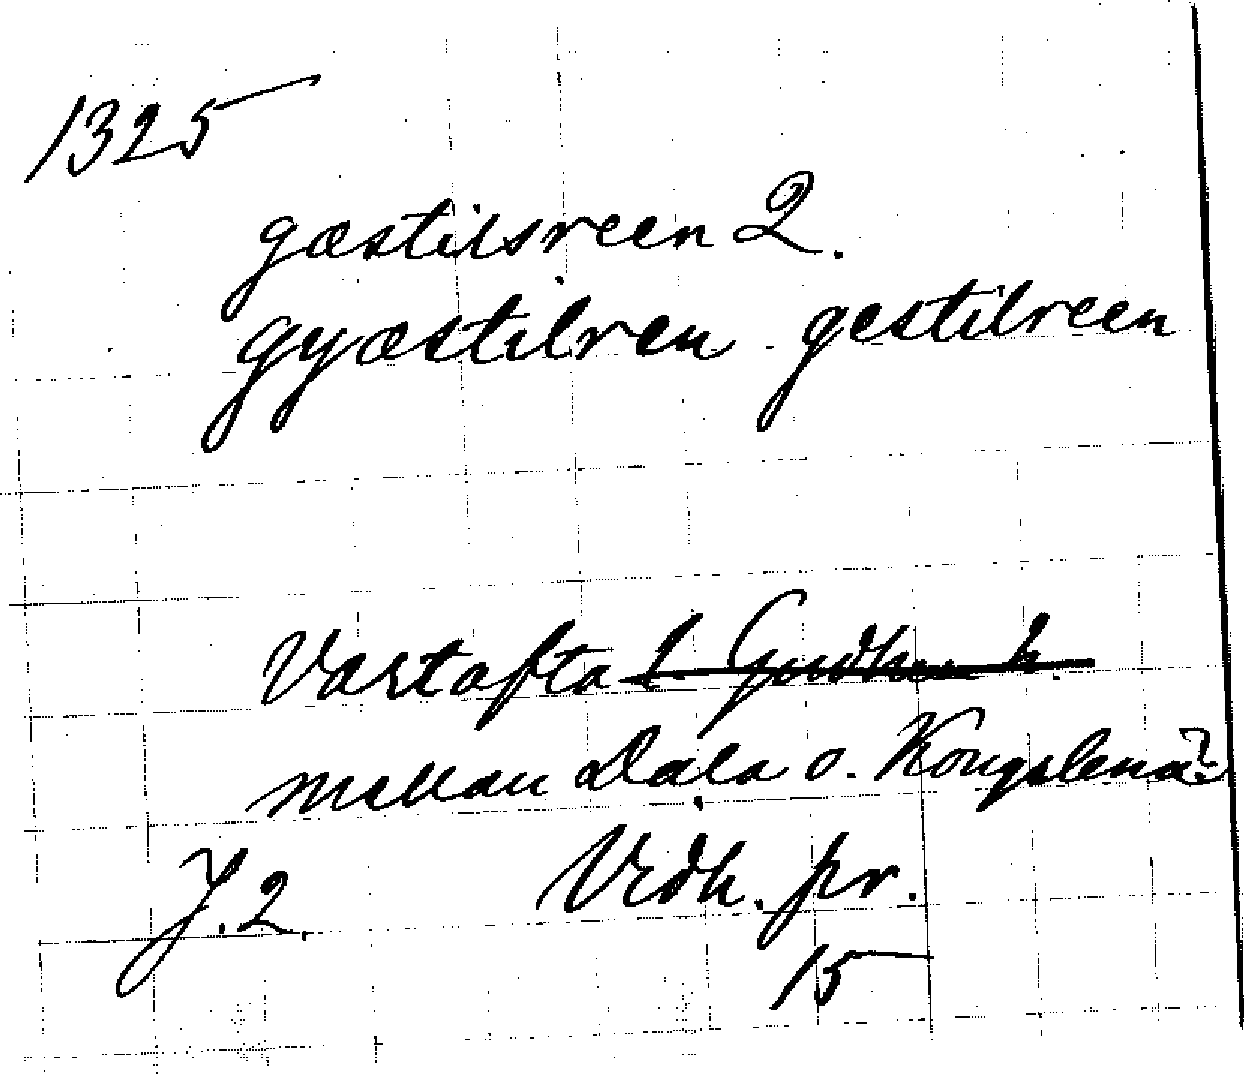 1325
gæstilsreen 2.
gyæstilren gestilreen
Vartofta l. Gudhems h.
mellan Dala o. Kongslena?
J. 2. Vedh. pr.
15